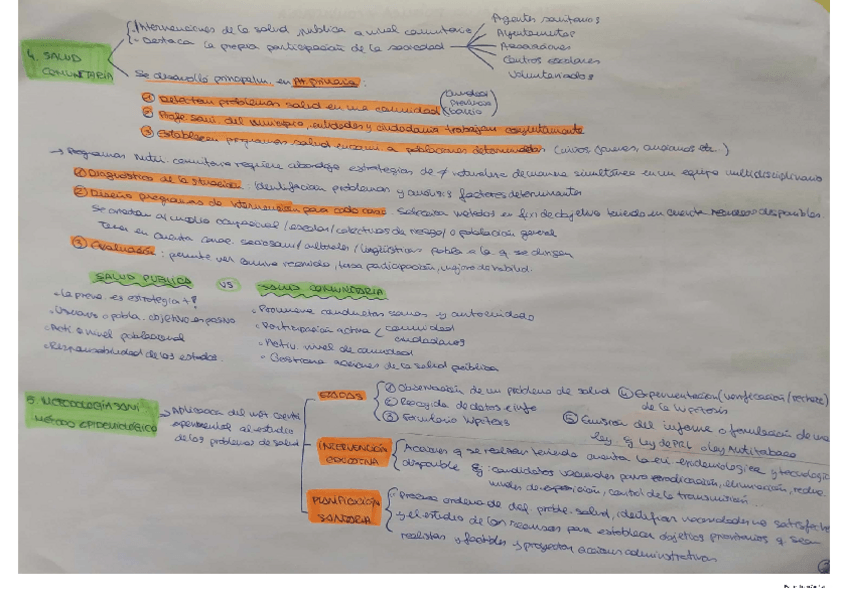 Intervenciones de la salud pública a nivel comunitario
Destaca la propia participación de la sociedad
Agentes sanitarios
Ayuntamientos
Asociaciones
Centros escolares
Voluntariados
4. SALUD
COMUNITARIA
Se desarrolla principalm. en At. primaria:
① Detectan problemas salud en una comunidad
barrio
② Profe. sani. del municipio, entidades y ciudadanía trabajan conjuntamente
③ Establecen programas salud poblaciones determinadas
→ Programas Nutri. comunitaria requiere abordaje estrategias de ≠ naturaleza de manera simultánea en un equipo multidisciplinario
① Diagnóstico de la situación: identificación problemas y análisis factores determinantes
② Diseño programas de intervención para cada caso.
Se orientan al medio ocupacional/escolar/colectivos de riesgo/o población general
Tener en cuenta carac. culturales/lingüísticas pobla. a la q se dirigen
③ Evaluación: permite ver camino recorrido, tasa participación,
SALUD PÚBLICA VS SALUD COMUNITARIA
La preve. es estrategia +?
Usuario o pobla. objetivo es pasivo
Acti. a nivel poblacional
Responsabilidad de los estados.
Promueve conductas sanas y autocuidado
Participación activa comunidad
ciudadanos
Activ. nivel de comunidad
Gestiona acciones de la salud pública
5. METODOLOGÍA SANI
MÉTODO EPIDEMIOLÓGICO
Aplicación del
experimental al estudio
de los problemas de salud
ETAPAS
① Observación de un problema de salud
② Recogida de datos e info
③ Formulario hipótesis
④ Experimentación (verificación/rechazo)
de la hipótesis
⑤ Emisión del informe o formulación de una
ley. Ej Ley de PRL o Ley Antitabaco
INTERVENCIÓN
Acciones q se realizan teniendo cuenta la epidemiológica y tecnología
disponible Ej: candidatos vacunales para erradicación, eliminación, reduc.
niveles de exposición, control de la transmisión...
PLANIFICACIÓN
SANITARIA
Proceso ordenado del proble. salud, identifican necesidades no satisfechas
y el estudio de los recursos para establecer objetivos prioritarios q sean
realistas y factibles y proyectan acciones administrativas